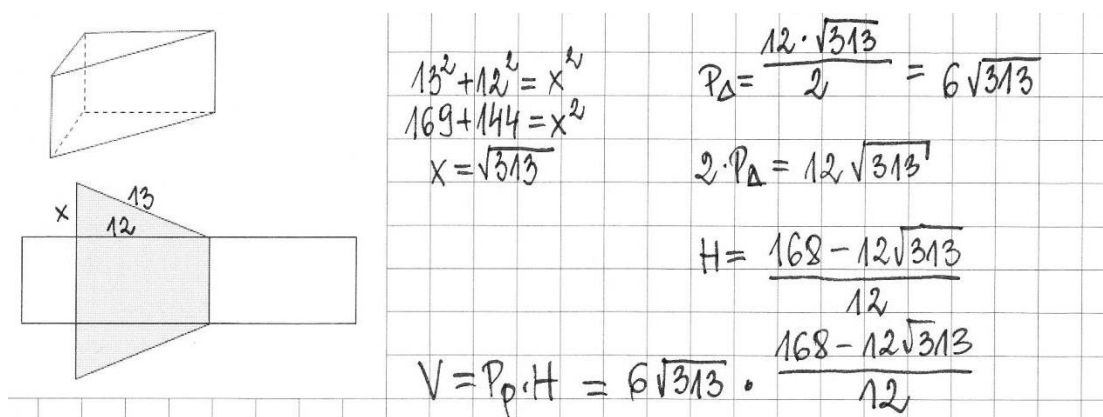 x 13
12
13² + 12² = x²
169 + 144 = x²
x = √313
P_Δ = (12 · √313)/2 = 6√313
2 · P_Δ = 12√313
H = (168 − 12√313)/12
V = P_p · H = 6√313 · (168 − 12√313)/12